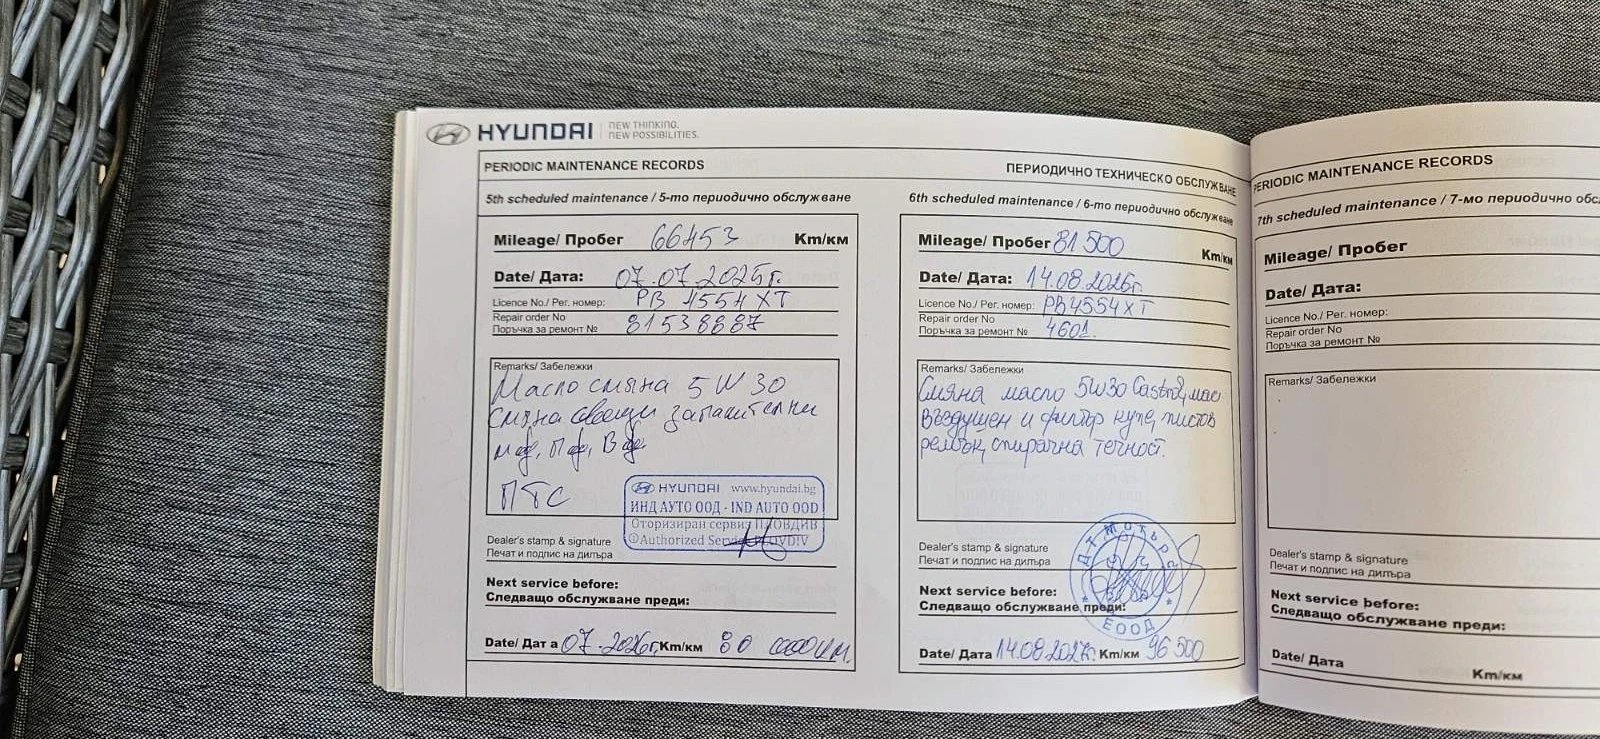 HYUNDAI
NEW THINKING.
NEW POSSIBILITIES.
PERIODIC MAINTENANCE RECORDS
ПЕРИОДИЧНО ТЕХНИЧЕСКО ОБСЛУЖВАНЕ
5th scheduled maintenance / 5-то периодично обслужване
Mileage/ Пробег 66453 Km/км
Date/ Дата: 07.07.2025г.
Licence No./ Рег. номер: РВ 4554 ХТ
Repair order No
Поръчка за ремонт № 81538887
Remarks/ Забележки
Масло смяна 5W30
смяна свещи запалителни
мф, пф, Вф.
ПТС
HYUNDAI www.hyundai.bg
ИНД АУТО ООД - IND AUTO OOD
Оторизиран сервиз ПЛОВДИВ
Authorized Service PLOVDIV
Dealer's stamp & signature
Печат и подпис на дилъра
Next service before:
Следващо обслужване преди:
Date/ Дат а 07.2026г. Km/км 80 000 км.
6th scheduled maintenance / 6-то периодично обслужване
Mileage/ Пробег 81500 Km/км
Date/ Дата: 14.08.2026г.
Licence No./ Рег. номер: РВ4554ХТ
Repair order No
Поръчка за ремонт № 4601.
Remarks/ Забележки
Смяна масло 5W30 Castrol, мас
Въздушен и филтър купе, пистов
ремък, спирачна течност.
Dealer's stamp & signature
Печат и подпис на дилъра
ДТ Мотърс
ЕООД
Next service before:
Следващо обслужване преди:
Date/ Дата 14.08.2027г. Km/км 96500
PERIODIC MAINTENANCE RECORDS
7th scheduled maintenance / 7-мо периодично обс
Mileage/ Пробег
Date/ Дата:
Licence No./ Рег. номер:
Repair order No
Поръчка за ремонт №
Remarks/ Забележки
Dealer's stamp & signature
Печат и подпис на дилъра
Next service before:
Следващо обслужване преди:
Date/ Дата Km/км